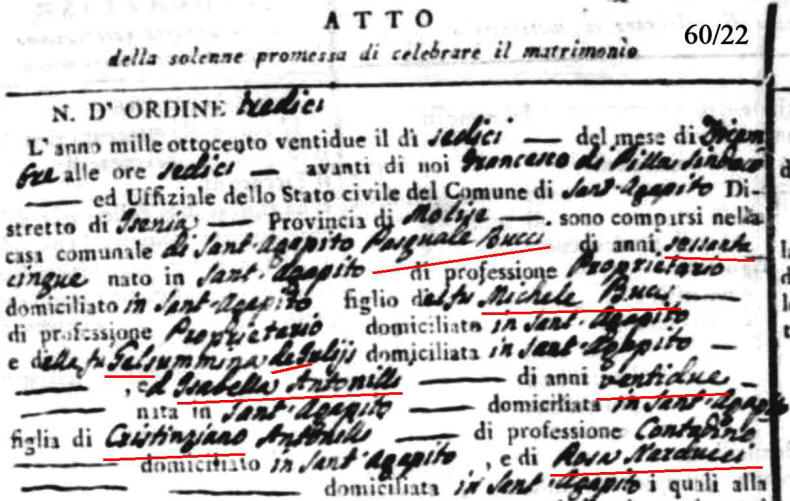 ATTO
60/22
della solenne promessa di celebrare il matrimonio
N. D' ORDINE tredici
L' anno mille ottocento ventidue il di sedici — del mese di Dicem
bre alle ore sedici — avanti di noi Francesco di Pilla Sindaco
— ed Uffiziale dello Stato civile del Comune di Sant'Agapito Di-
stretto di Isernia — Provincia di Molise —. sono comparsi nella
casa comunale di Sant'Agapito Pasquale Bucci di anni sessanta
cinque nato in Sant'Agapito di professione Proprietario
domiciliato in Sant'Agapito figlio del fu Michele Bucci —
di professione Proprietario domiciliato in Sant'Agapito
e della fu Gelsummina de Iulijs domiciliata in Sant'Agapito —
— , ed Isabella Antonilli — di anni ventidue —
— nata in Sant'Agapito — domiciliata in Sant'Agapito
figlia di Cristinziano Antonilli — di professione Contadino
— domiciliato in Sant'Agapito , e di Rosa Narducci
— domiciliata in Sant'Agapito i quali alla